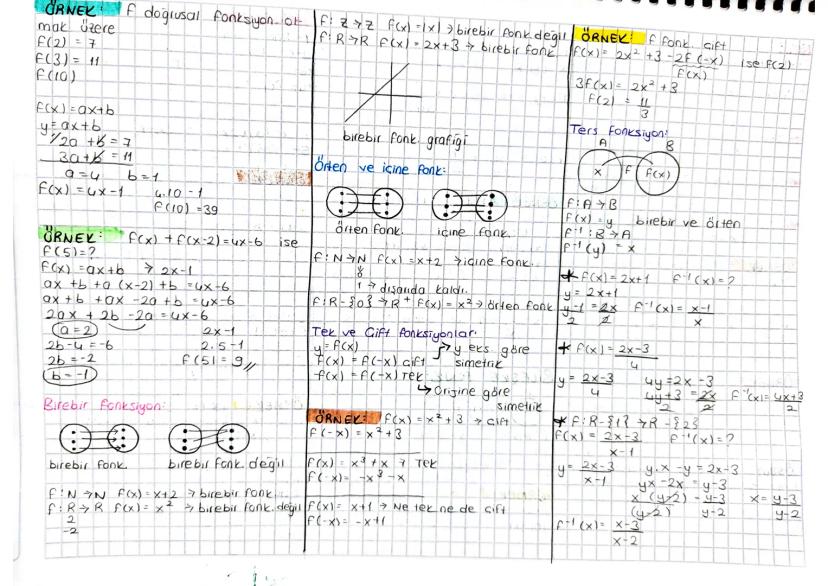 ÖRNEK: f doğrusal fonksiyon ol-
mak üzere
f(2) = 7
f(3) = 11
f(10)
f(x) = ax+b
y = ax+b
-1/ 2a + b = 7
3a + b = 11
a = 4 b = 1
f(x) = 4x-1 4.10 - 1
f(10) = 39
ÖRNEK: f(x) + f(x-2) = 4x-6 ise
f(5) = ?
f(x) = ax+b → 2x-1
ax + b + a(x-2) + b = 4x-6
ax + b + ax - 2a + b = 4x-6
2ax + 2b - 2a = 4x-6
a = 2 2x-1
2b-4 = -6 2.5-1
2b = -2 f(5) = 9
b = -1
Birebir Fonksiyon:
birebir fonk. birebir fonk. değil
f: N→N f(x) = x+2 → birebir fonk.
f: R→R f(x) = x² → birebir fonk. değil
2
-2
f: Z→Z f(x) = |x| → birebir fonk değil
f: R→R f(x) = 2x+3 → birebir fonk.
birebir fonk. grafiği
Örten ve içine fonk:
örten fonk. içine fonk.
f: N→N f(x) = x+2 → içine fonk.
0
1 → dışarıda kaldı.
f: R-{0} → R⁺ f(x) = x² → örten fonk
Tek ve Çift Fonksiyonlar:
y = f(x)
f(x) = f(-x) çift → y eks. göre simetrik
-f(x) = f(-x) Tek
→ Orijine göre simetrik
ÖRNEK: f(x) = x²+3 → çift
f(-x) = x²+3
f(x) = x³+x → Tek
f(-x) = -x³-x
f(x) = x+1 → Ne tek ne de çift
f(-x) = -x+1
ÖRNEK: f fonk. çift
f(x) = 2x²+3-2f(-x) ise f(2)
f(x)
3f(x) = 2x²+3
f(2) = 11/3
Ters Fonksiyon:
A B
x f f(x)
f: A→B
f(x) = y birebir ve örten
f⁻¹: B→A
f⁻¹(y) = x
* f(x) = 2x+1 f⁻¹(x) = ?
y = 2x+1
y-1/2 = 2x/2 f⁻¹(x) = x-1/x
* f(x) = 2x-3/4
y = 2x-3/4 4y = 2x-3
4y+3/2 = 2x/2 f⁻¹(x) = 4x+3/2
* f: R-{1} → R-{2}
f(x) = 2x-3/x-1 f⁻¹(x) = ?
y = 2x-3/x-1 y.x - y = 2x-3
yx - 2x = y-3
x(y-2)/(y-2) = y-3/y-2 x = y-3/y-2
f⁻¹(x) = x-3/x-2